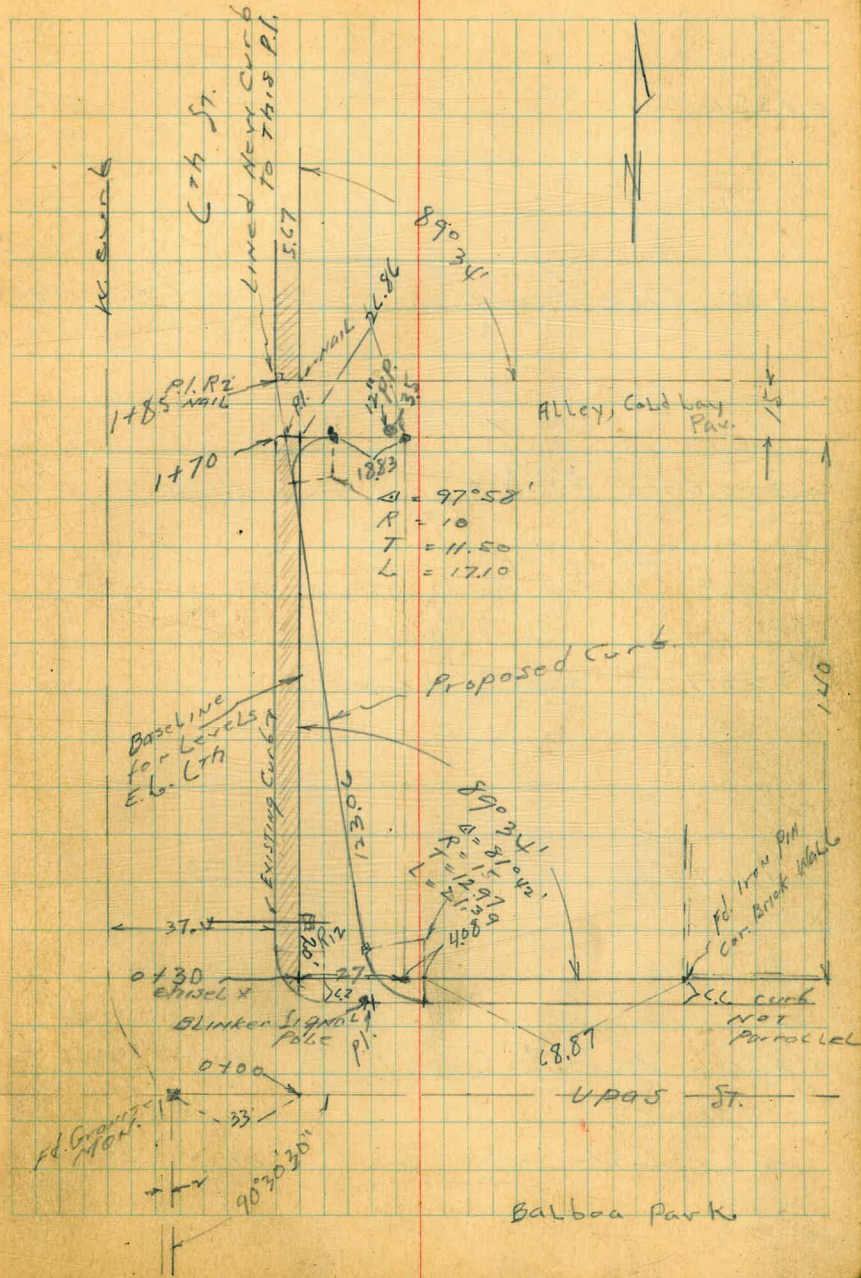 W. Curb
6th St.
LINED NEW Curb
to THIS P.I.
5.67
89°
34'
N
NAIL
26.86
P.I. Rz
NAIL
1+85
P.I.
12" P.P.
3.5
Alley, Cold Lay
Pav.
15
1+70
18.83
Δ = 97°58'
R = 10
T = 11.50
L = 17.10
Proposed Curb
140
Baseline
for Levels
E.L. 6th
EXISTING Curb
123.06
89°34'
Δ = 81°42'
R = 15
T = 12.97
L = 21.39
4.08
Fd. Iron Pin
Cor. Brick Wall
37.
20'
R12
0+30
Chisel X
27
6.2
BLINKER SIGNAL
POLE
P.I.
68.87
6.6 Curb
NOT
Parrollel
0+00
33'
UPAS ST.
Fd. Granite
MON.
2
90°30'30"
Balboa Park